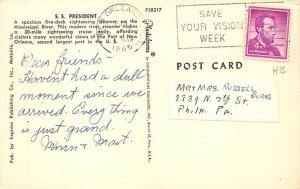 S. S. PRESIDENT
A spacious five-deck sightseeing steamer on the
Mississippi River. This modern river steamer makes
a 30-mile sightseeing cruise daily, affording
visitors many wonderful views of the Port of New
Orleans, second largest port in the U. S.
P58317
Pub. by Express Publishing Co., Inc., Metairie, La.
1965
SAVE
YOUR VISION
WEEK
4¢
POST CARD
Dear friends-
Haven't had a dull
moment since we
arrived. Everything
is just grand.
Mr+Mrs. Russell
Burns
N. 7th St.
Phila. Pa.